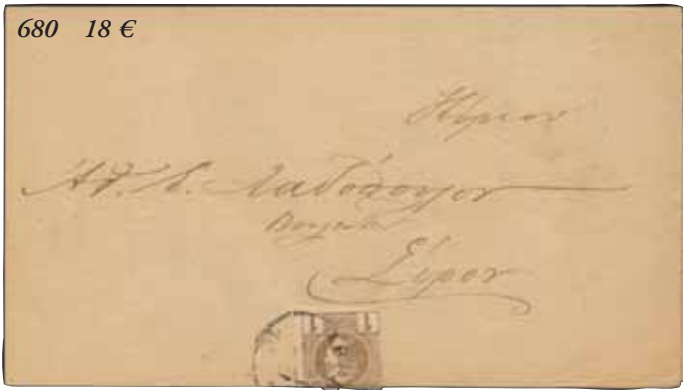 680 18 €
Κύριον
Αθ. Ν. Λαδόπουλον
Σύρον
1 1